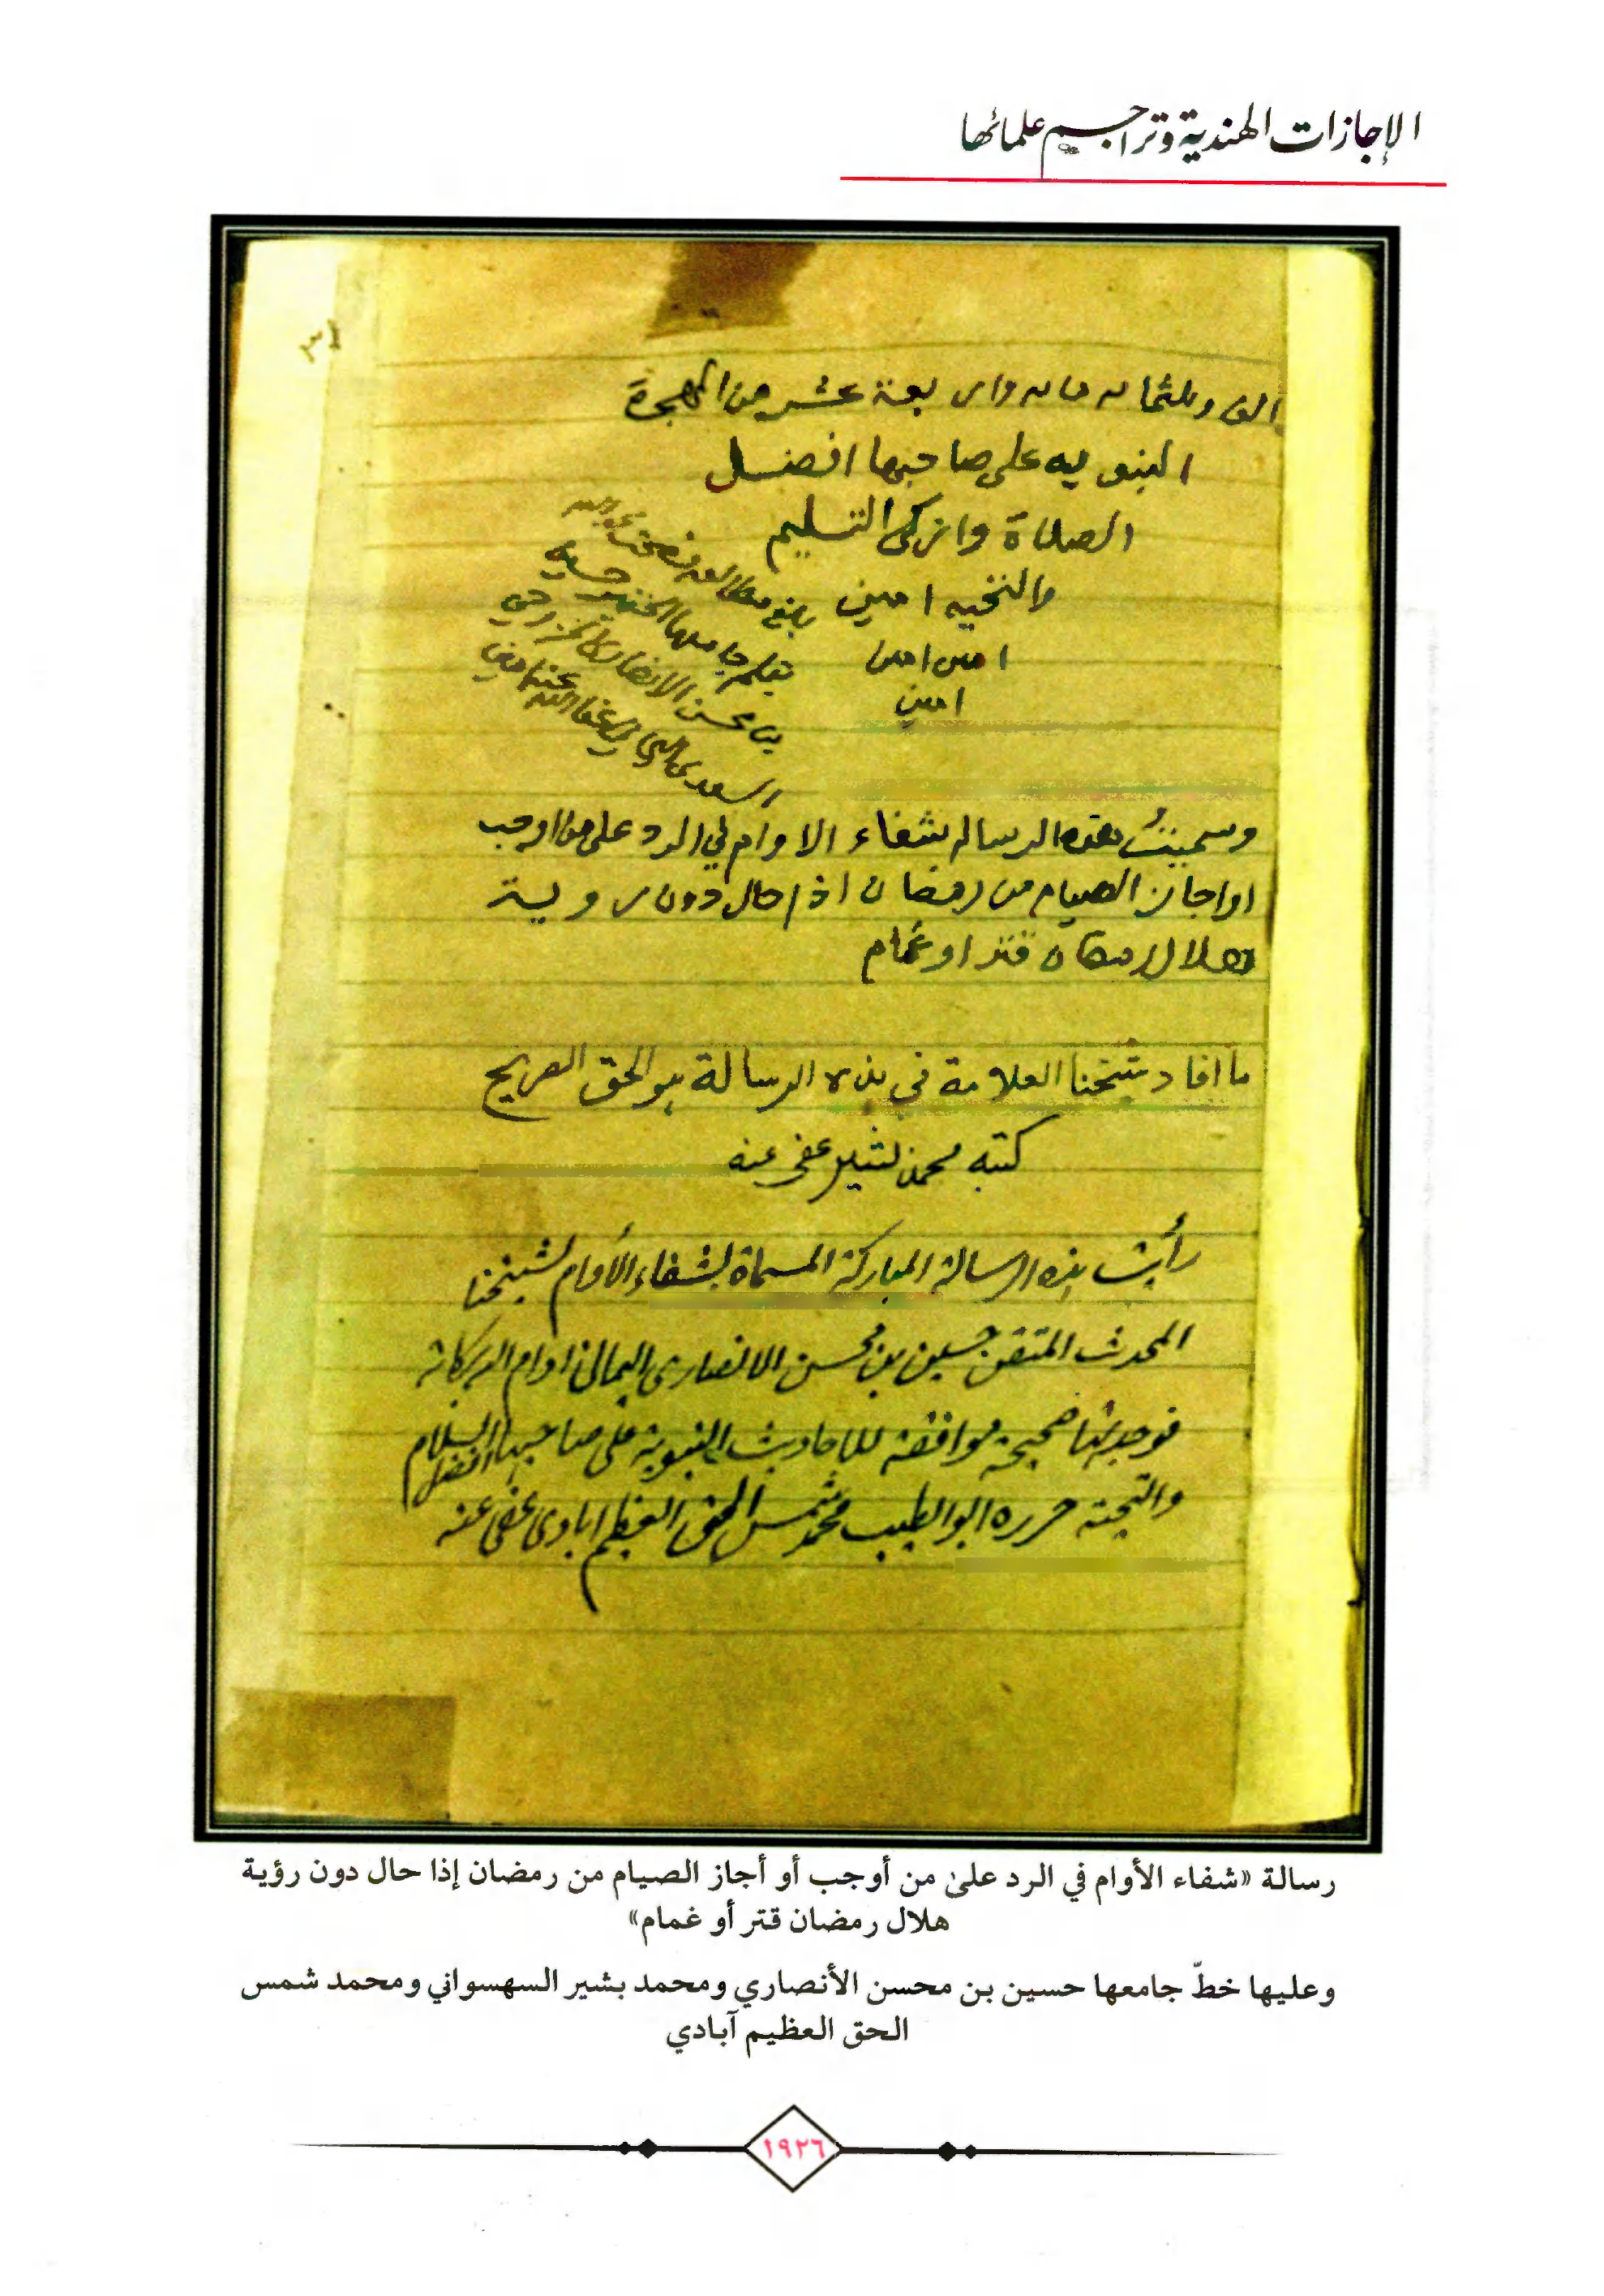 الإجازات الهندية وتراجم علمائها
٣١
الف وثلثمائه مايه واربعة عشر من الهجرة
النبويه على صاحبها افضل
الصلاة وازكى التسليم
والتحيه امين
امين امين
امين
بلغ مطالعه
بقلم جامعها الحقير حسين
بن محسن الانصاري الخزرجي
السعدي عفا الله عنهما
وسميتُ هذه الرساله بشفاء الاوام في الرد على من اوجب
او اجاز الصيام من رمضان اذا حال دون رويية
هلال رمضان قتر او غمام
ما افاد شيخنا العلامة في هذه الرسالة هو الحق الصريح
كتبه محمد بشير عفى عنه
رأيت هذه الرسالة المباركة المسماة بشفاء الأوام لشيخنا
المحدث المتقن حسين بن محسن الانصارى اليمانى ادام الله بركاته
فوجدتها صحيحة موافقة للاحاديث النبوية على صاحبها افضل السلام
والتحية حرره ابو الطيب محمد شمس الحق العظيم ابادى عفى عنه
رسالة «شفاء الأوام في الرد على من أوجب أو أجاز الصيام من رمضان إذا حال دون رؤية
هلال رمضان قتر أو غمام»
وعليها خطّ جامعها حسين بن محسن الأنصاري ومحمد بشير السهسواني ومحمد شمس
الحق العظيم آبادي
١٩٢٦